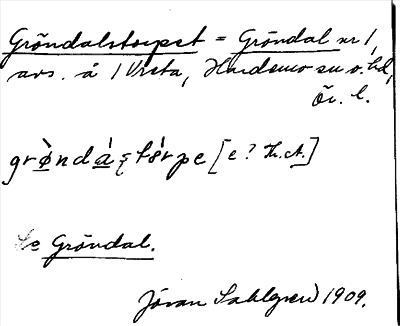 Gröndalstorpet = Gröndal nr 1,
avs. å 1 Vreta, Hardemo sn o. hd,
Ör. l.
grø̀nda̲ʹꞩtørpe [e? Th.A.]
Se Gröndal.
Jöran Sahlgren 1909.